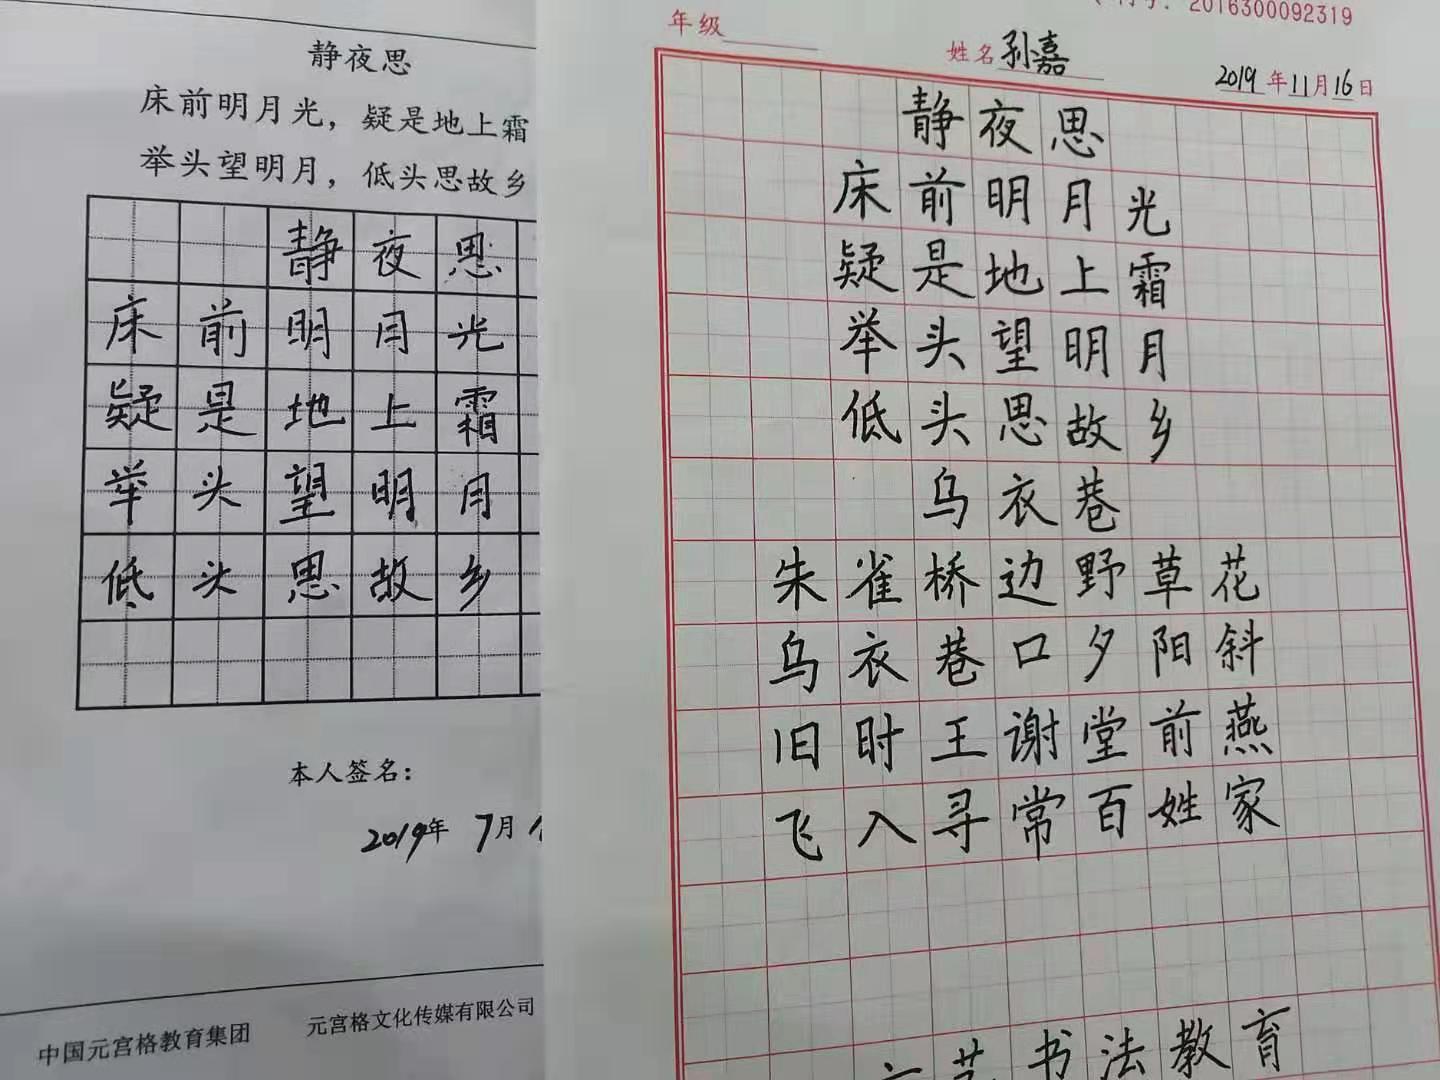 静夜思
床前明月光，疑是地上霜
举头望明月，低头思故乡
静夜思
床前明月光
疑是地上霜
举头望明月
低头思故乡
本人签名：
2019年 7月
中国元宫格教育集团 元宫格文化传媒有限公司
2016300092319
年级 姓名 孙嘉 2019年11月16日
静夜思
床前明月光
疑是地上霜
举头望明月
低头思故乡
乌衣巷
朱雀桥边野草花
乌衣巷口夕阳斜
旧时王谢堂前燕
飞入寻常百姓家
艺书法教育